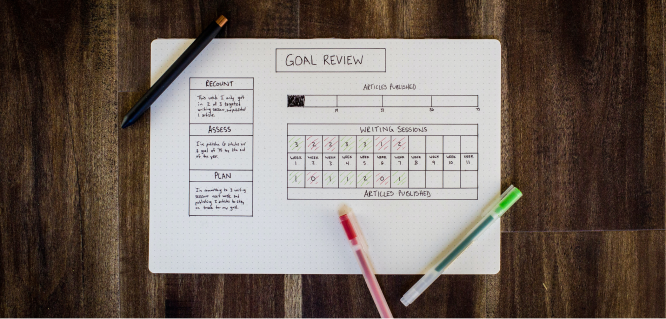 GOAL REVIEW
RECOUNT
This week I only got
in 2 of 3 targeted
writing sessions, and published
1 article.
ASSESS
I've published 6 articles of
a goal of 75 by the end
of the year.
PLAN
I'm committing to 3 writing
sessions next week and
publishing 2 articles to stay
on track for my goal.
ARTICLES PUBLISHED
75
WRITING SESSIONS
3 2 2 3 3 1 2
WEEK WEEK WEEK WEEK WEEK WEEK WEEK WEEK WEEK WEEK WEEK
1 2 3 4 5 6 7 8 9 10 11
1 0 1 1 2 0 1
ARTICLES PUBLISHED